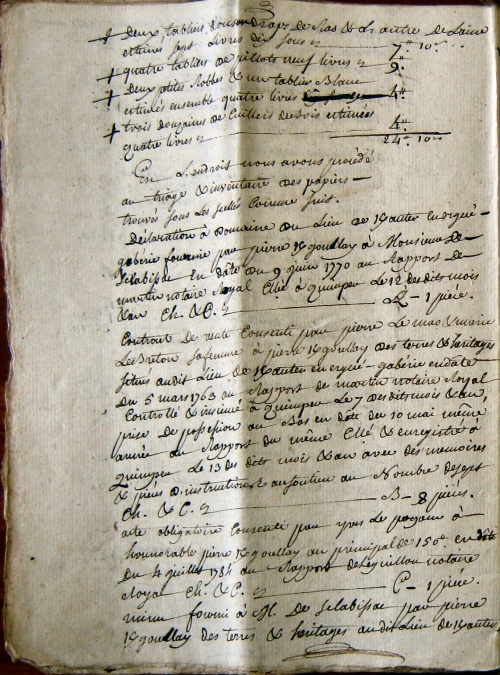 + deux tabliers l'un de Ras & L'autre de Laine
estimés sept Livres dix sous cy 7" 10s
+ quatre tabliers de neuf livres cy 9"
+ deux petites Robbes & un tablier Blanc
estimés ensemble quatre livres 4"
+ trois douzaines de Cuillers de Bois estimées
quatre livres cy 4"
24" 10s
En L'endroit nous avons procédé
au triage & inventaire des papiers
trouvés sous les scellés comme suit.
Déclaration à Domaine du Lieu de Kauten en ergué-
gabéric fournie par pierre Kgoullay à Monsieur De
Silabissac En date du 9 juin 1770 au Rapport de
martin notaire Royal Cllé à quimper Le 12 desdits mois
& an Ch. & C. cy 1 piéce.
Contrat de vente Consenti par pierre Le mao & marie
Le Breton sa femme à pierre Kgoullay des terres & heritages
situés audit Lieu de Kauten en ergué-gabéric en date
du 5 mars 1763 au Rapport de martin notaire Royal
Controllé & insinué à quimper Le 7 desdits mois & an,
prise de possession au Bas en date du 10 mai même
année au Rapport du même Cllé & enregistré à
quimper Le 13 des dits mois & an avec des memoires
& piéces d'instructions au soutien au Nombre de sept
Ch. & C. cy B - 8 piéces.
acte obligatoire Consenti par yves Le
honorable pierre Kgoullay au principal de 150" en date
du 4 juillet 1784 au Rapport de notaire
Royal Ch. & C. cy C - 1 piéce.
minu fourni à M. De Silabissac par pierre
Kgoullay des terres & heritages audit Lieu de Kauten